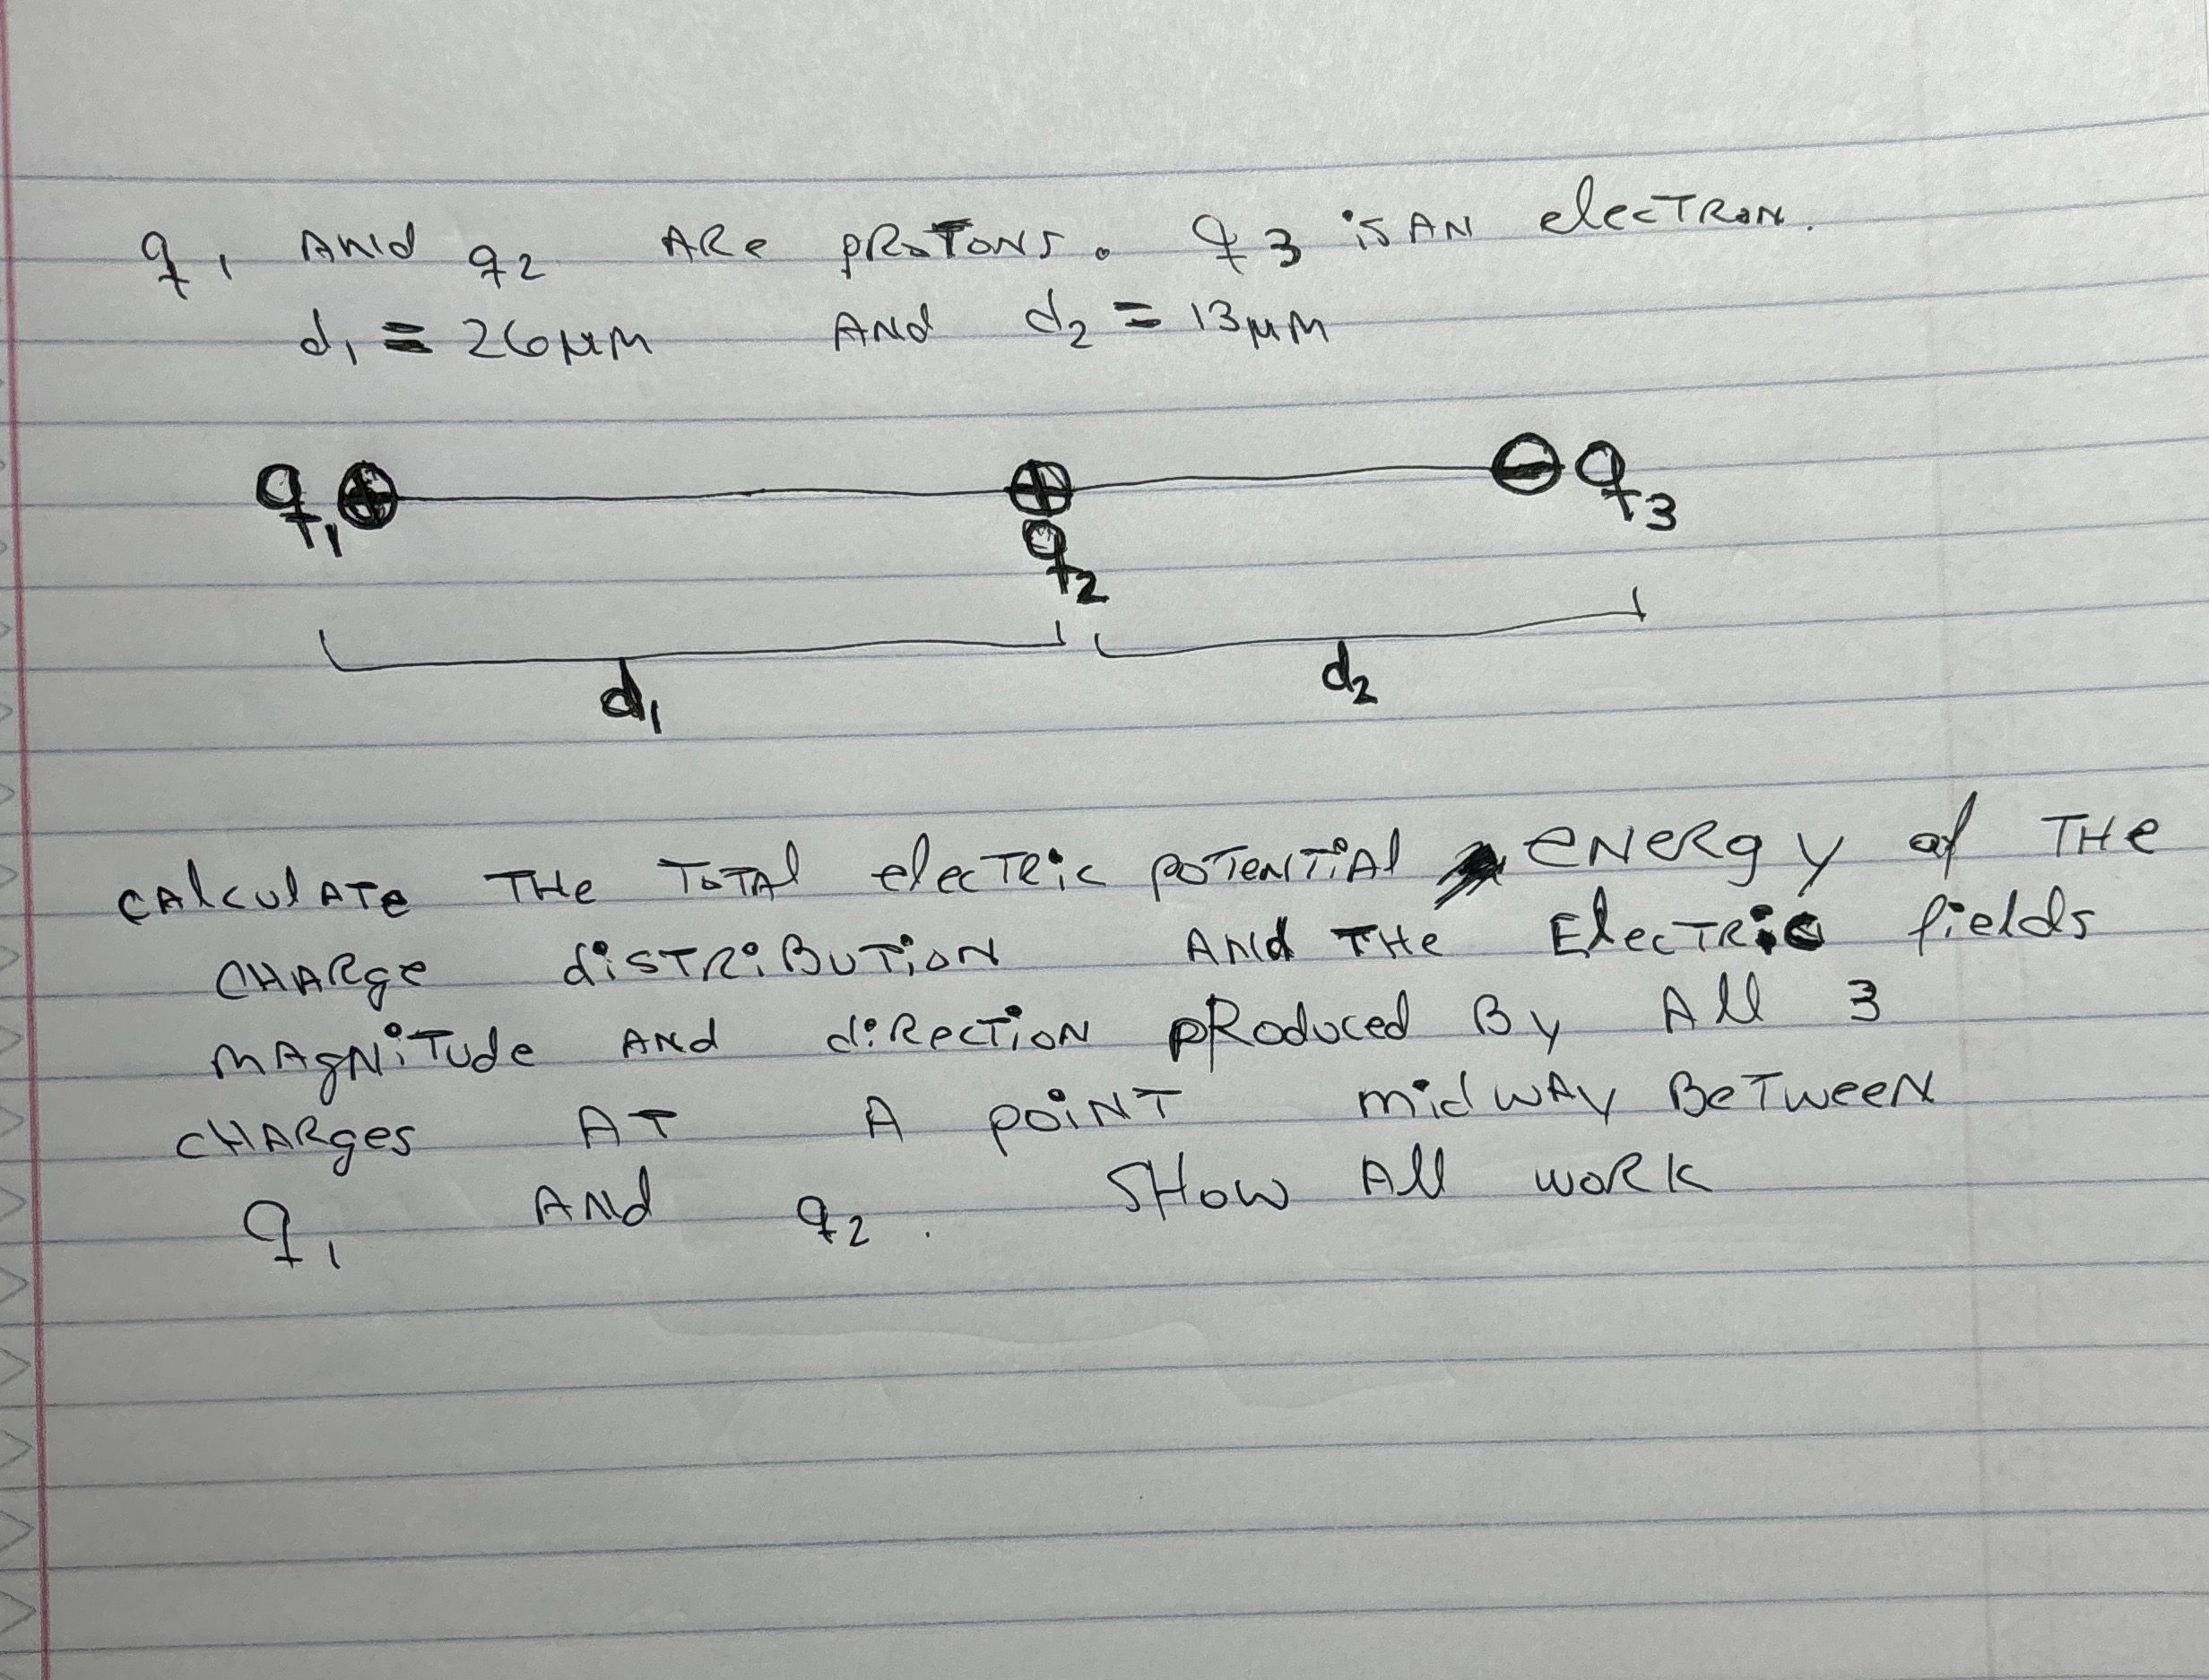 q₁ AND q₂ ARE PROTONS. q₃ is AN electron.
d₁ = 26 μm AND d₂ = 13 μm
q₁ ⊕ ⊕ ⊖ q₃
q₂
d₁ d₂
CALCULATE THE TOTAL electric POTENTIAL ENERGY of THE
CHARGE DISTRIBUTION AND THE Electric fields
MAGNITUDE AND direction PRODUCED BY All 3
CHARges AT A POINT midway BETWEEN
q₁ AND q₂. SHOW All work